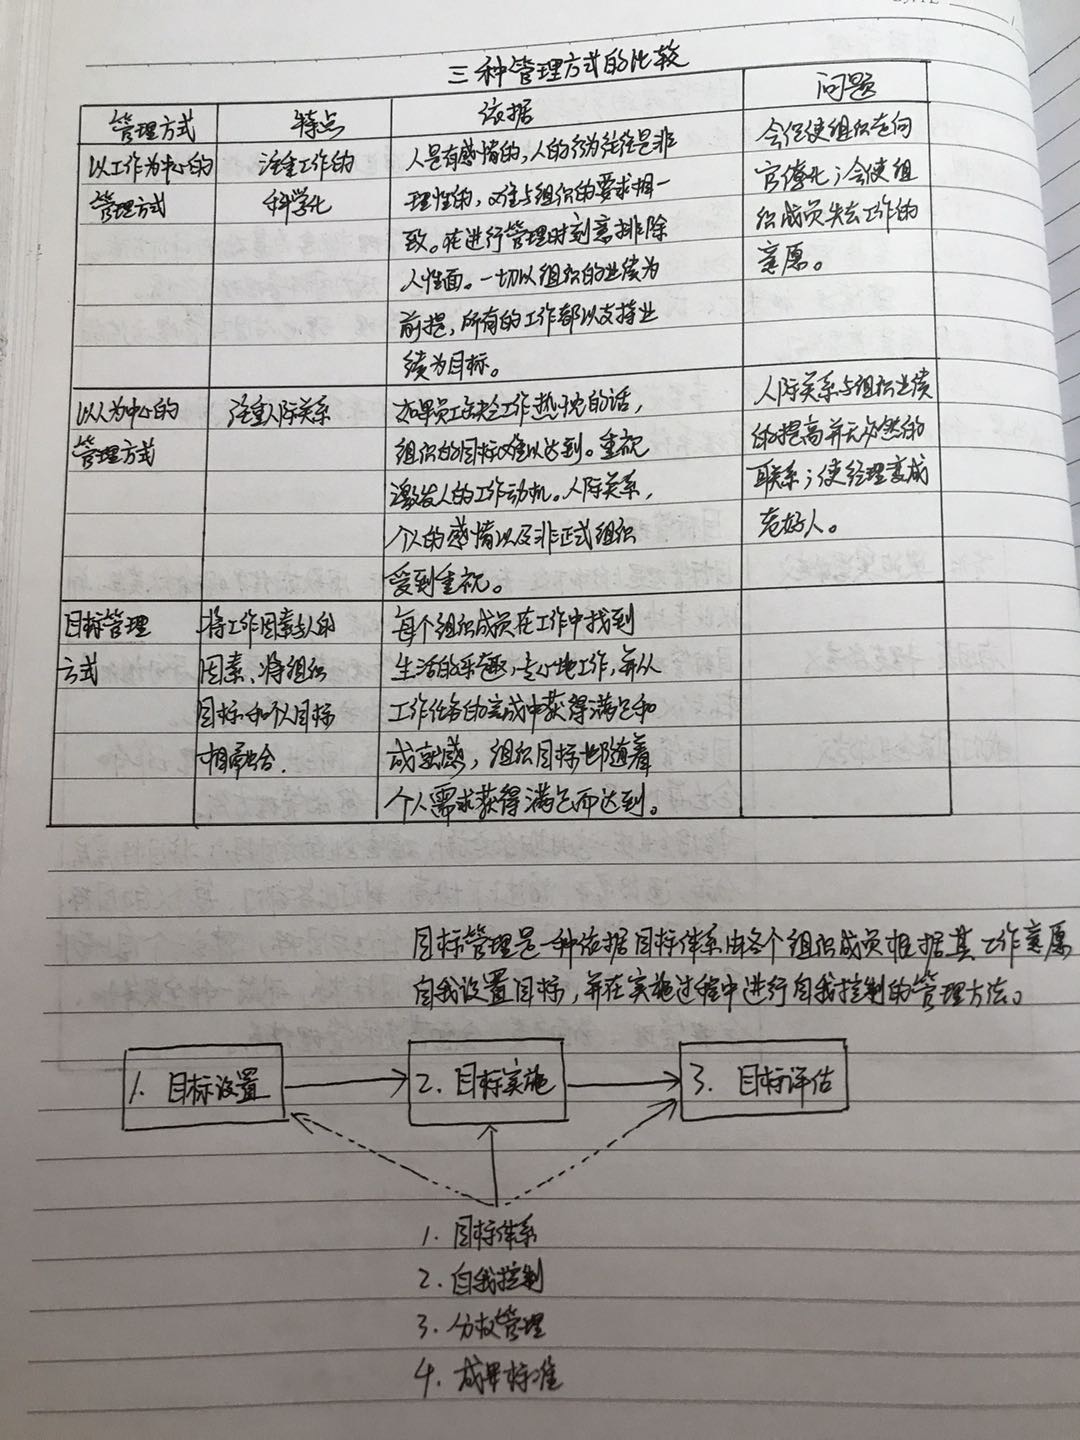 三种管理方式的比较
管理方式 特点 依据 问题
以工作为中心的 注重工作的 人是有感情的，人的行为往往是非 会促使组织走向
管理方式 科学化 理性的，难与组织的要求相一 官僚化；会使组
致。在进行管理时刻意排除 织成员失去工作的
人性面。一切以组织的业绩为 意愿。
前提，所有的工作都以支持业
绩为目标。
以人为中心的 注重人际关系 如果员工缺乏工作热忱的话， 人际关系与组织业绩
管理方式 组织的目标难以达到。重视 的提高并无必然的
激发人的工作动机。人际关系， 联系；使经理变成
个人的感情以及非正式组织 老好人。
受到重视。
目标管理 将工作因素与人的 每个组织成员在工作中找到
方式 因素、将组织 生活的乐趣，专心地工作，并从
目标和个人目标 工作任务的完成中获得满足和
相融合. 成就感，组织目标也随着
个人需求获得满足而达到。
目标管理是一种依据目标体系由各个组织成员根据其工作意愿
自我设置目标，并在实施过程中进行自我控制的管理方法。
1. 目标设置 2. 目标实施 3. 目标评估
1. 目标体系
2. 自我控制
3. 分权管理
4. 成果标准